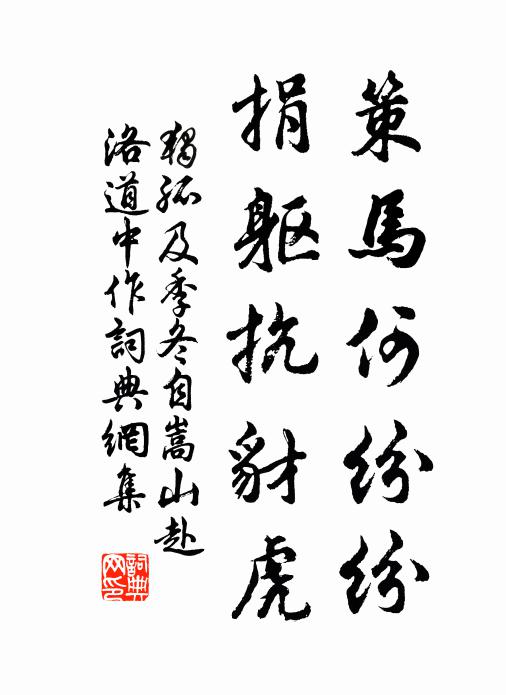 策馬何紛紛
捐軀抗豺虎
獨孤及季冬自嵩山赴
洛道中作詞典網集
詞典
网印